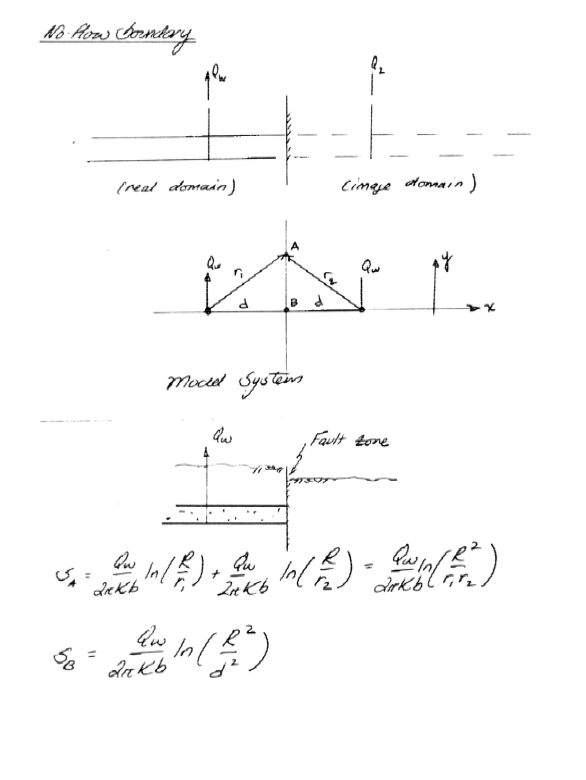 No-flow boundary
Qw Q2
(real domain) (image domain)
A
Qw r1 r2 Qw y
d B d x
Model System
Qw Fault zone
S_A = Qw/2πKb ln(R/r1) + Qw/2πKb ln(R/r2) = Qw/2πKb ln(R²/r1r2)
S_B = Qw/2πKb ln(R²/d²)